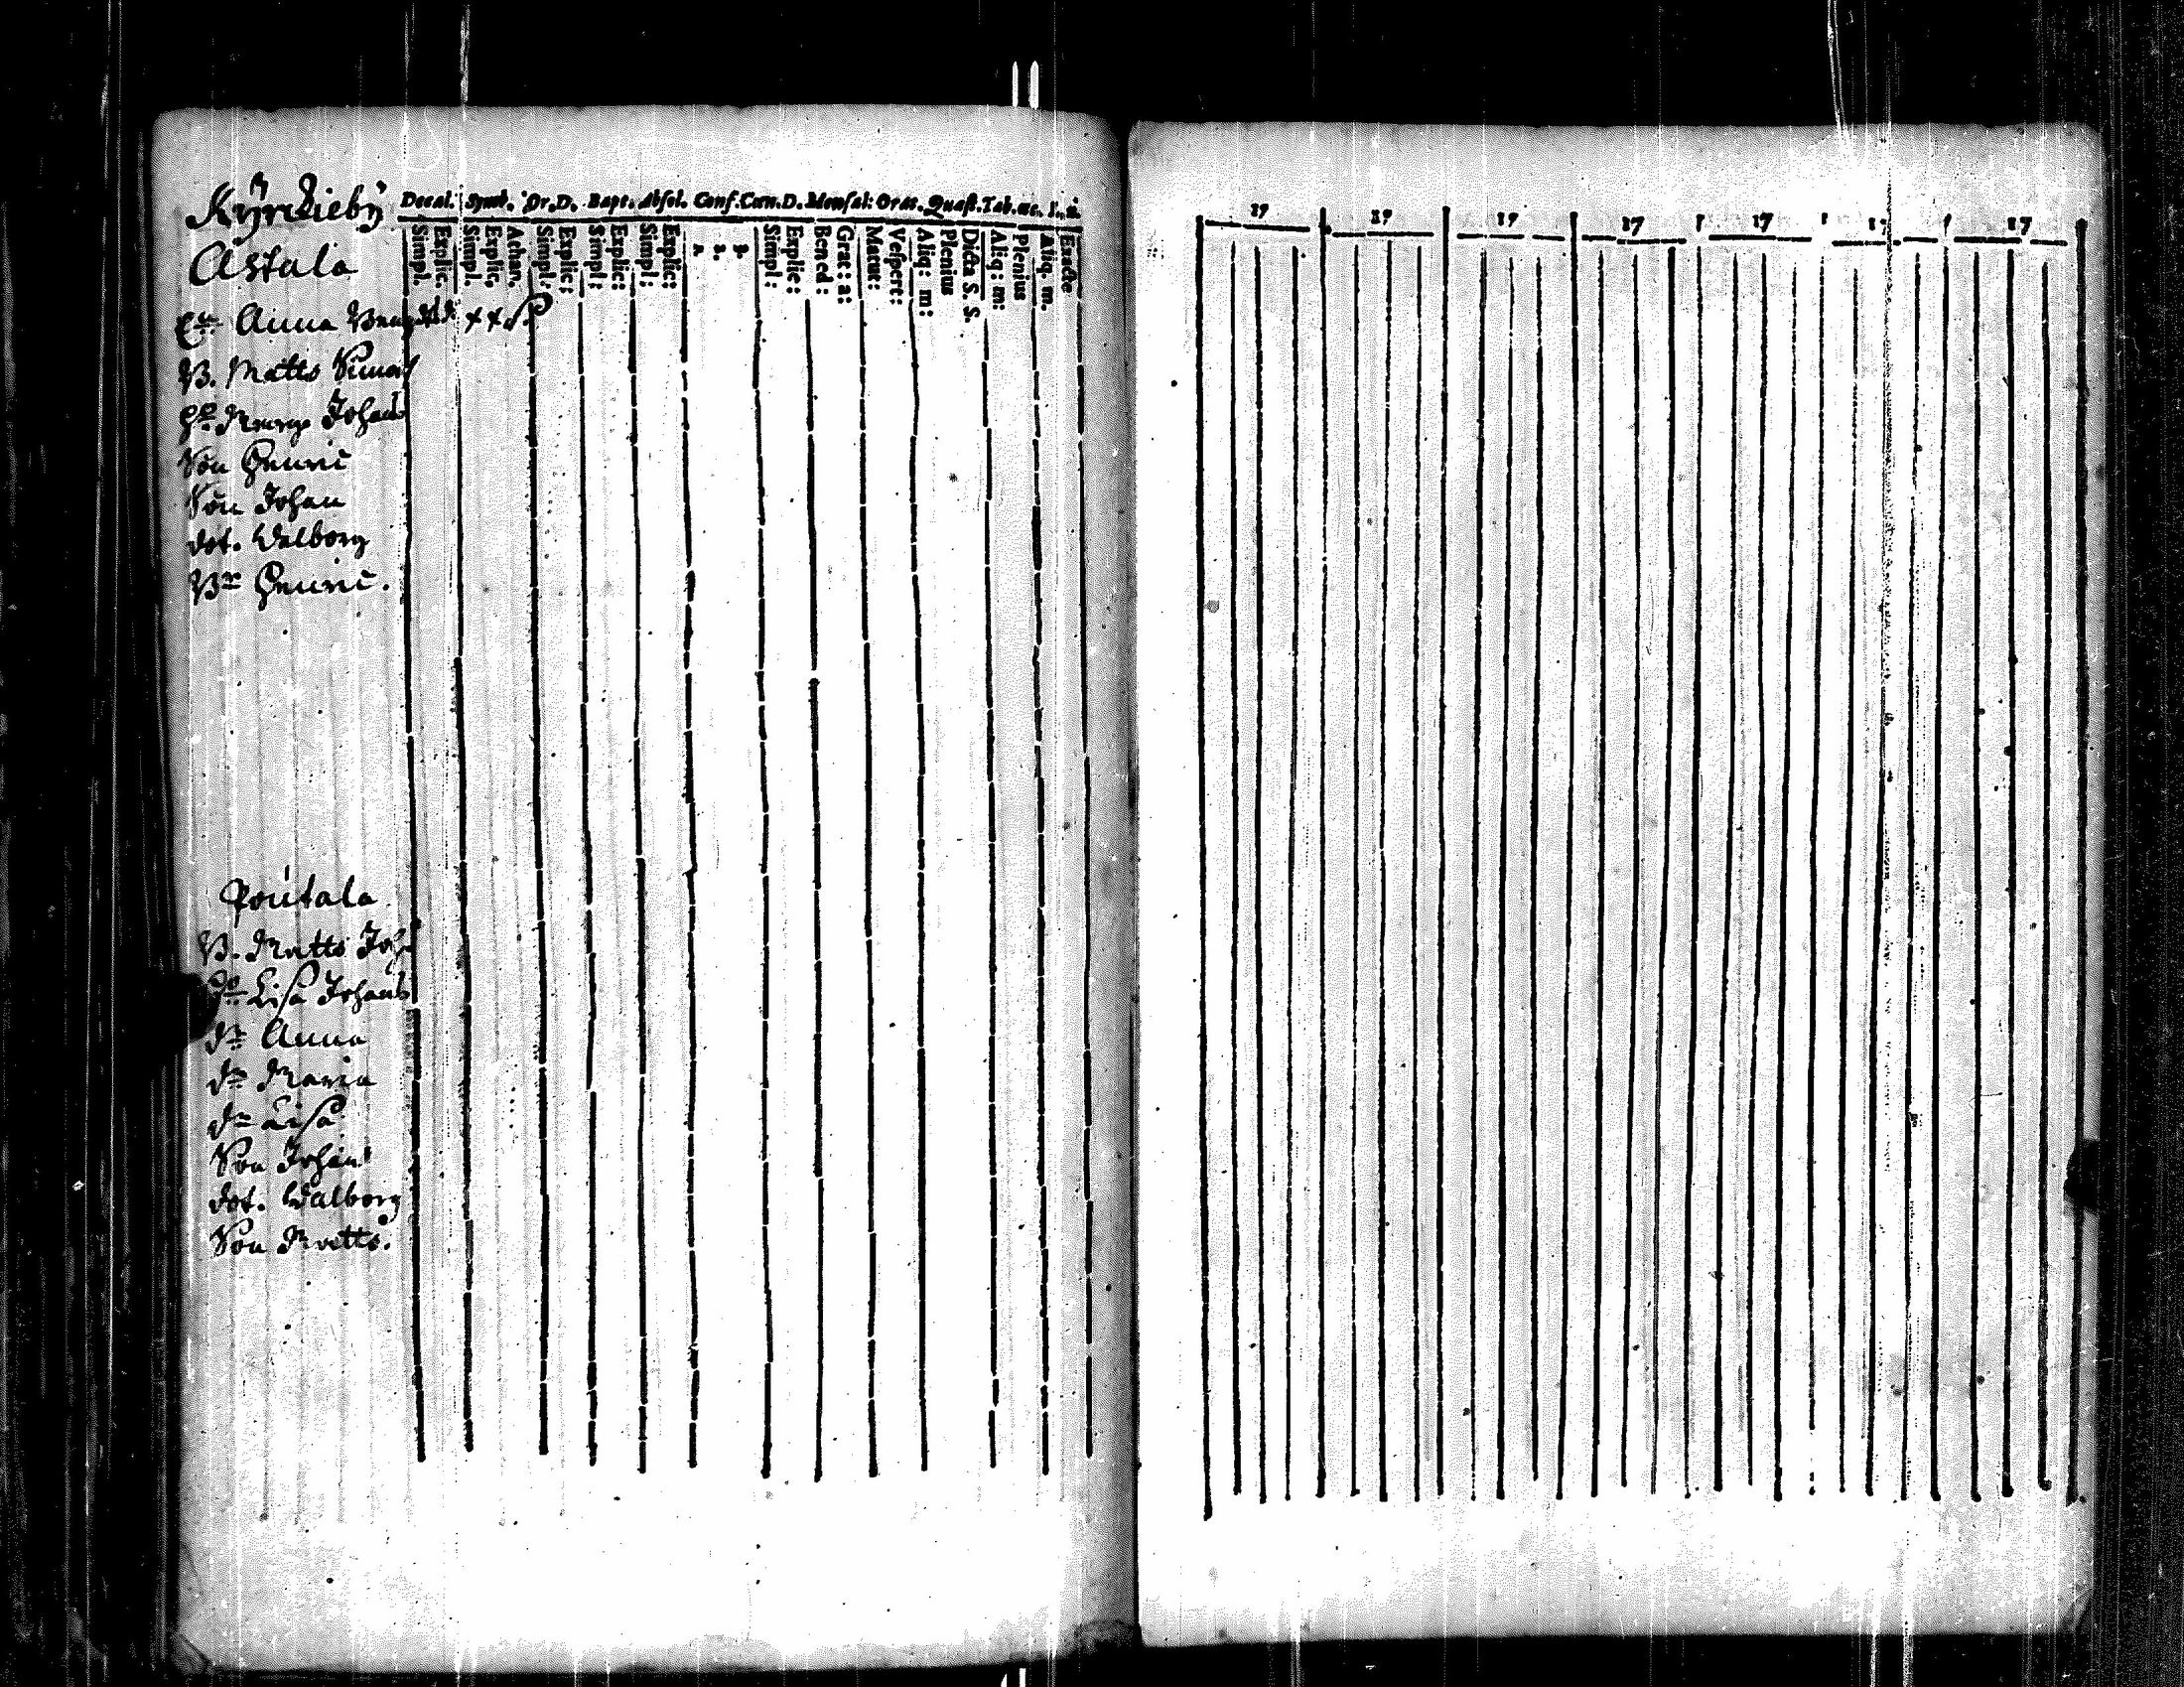 Kyrckieby
Decal. Symb. Or. D. Bapt. Absol. Conf. Cœn. D. Mensal: Orat. Quæst. Tab. œc.
Simpl. Explic. Simpl. Explic. Athan. Simpl: Explic: Simpl: Explic: Simpl: Explic: 1. 2. 3. Simpl: Explic: Bened: Grat: a: Matut: Vespert: Aliq: m: Plenius Dicta S. S. Aliq: m: Plenius Aliq. m. Exacte
Astala
Anna
B. Matts Simons
Johansd
Son Henric
Son Johan
dot. Walborg
Br Henric.
Poutala
B. Matts Joh
Lisa Johansd
dr Anna
dr Maria
dr Lisa
Son Johan
dot. Walborg
Son Matts.
17 17 17 17 17 17 17